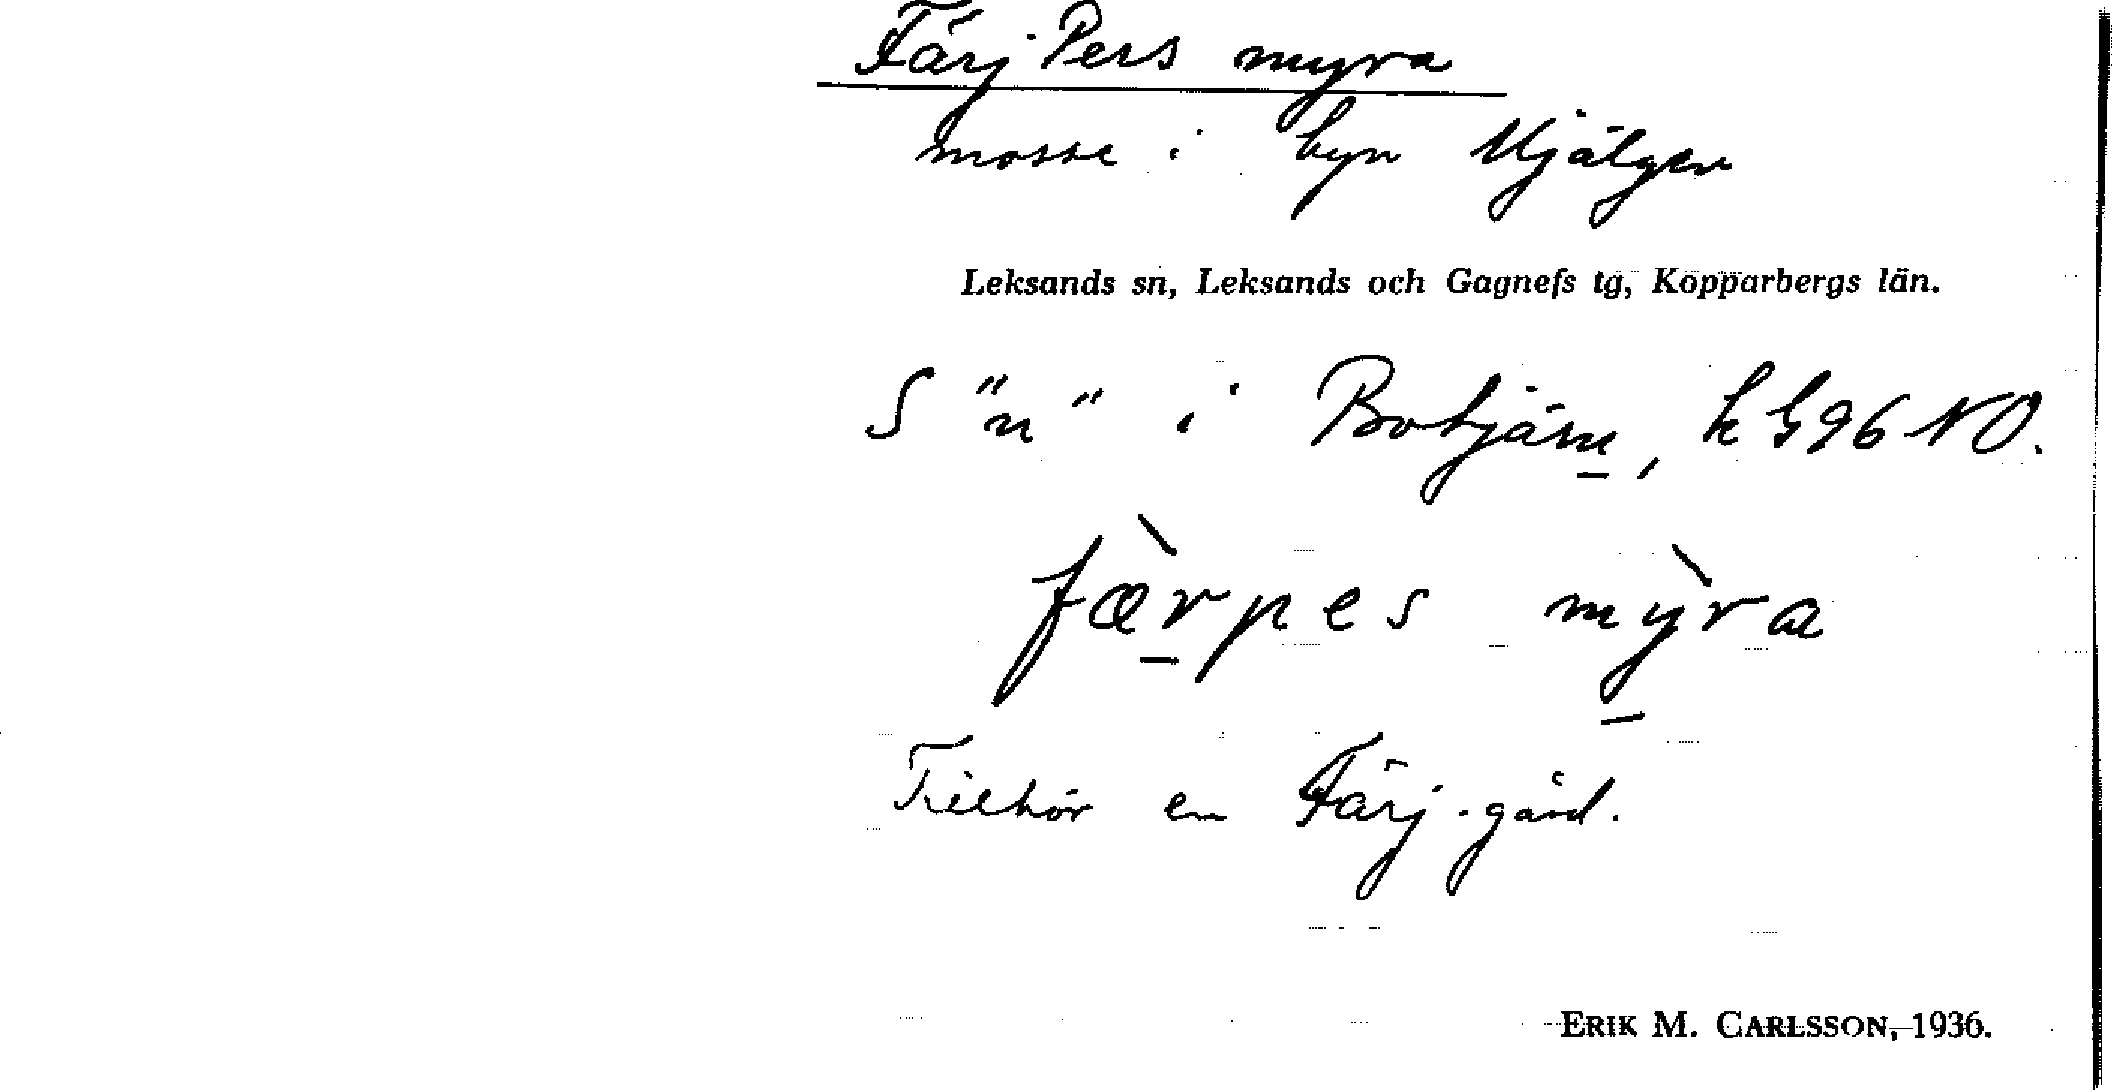 Färj Pers myra
mosse i byn Hjälgen
Leksands sn, Leksands och Gagnefs tg, Kopparbergs län.
S "n" i Botjärn, k G96 NO.
færpes myra
Tillhör en Färj-gård.
ERIK M. CARLSSON, 1936.